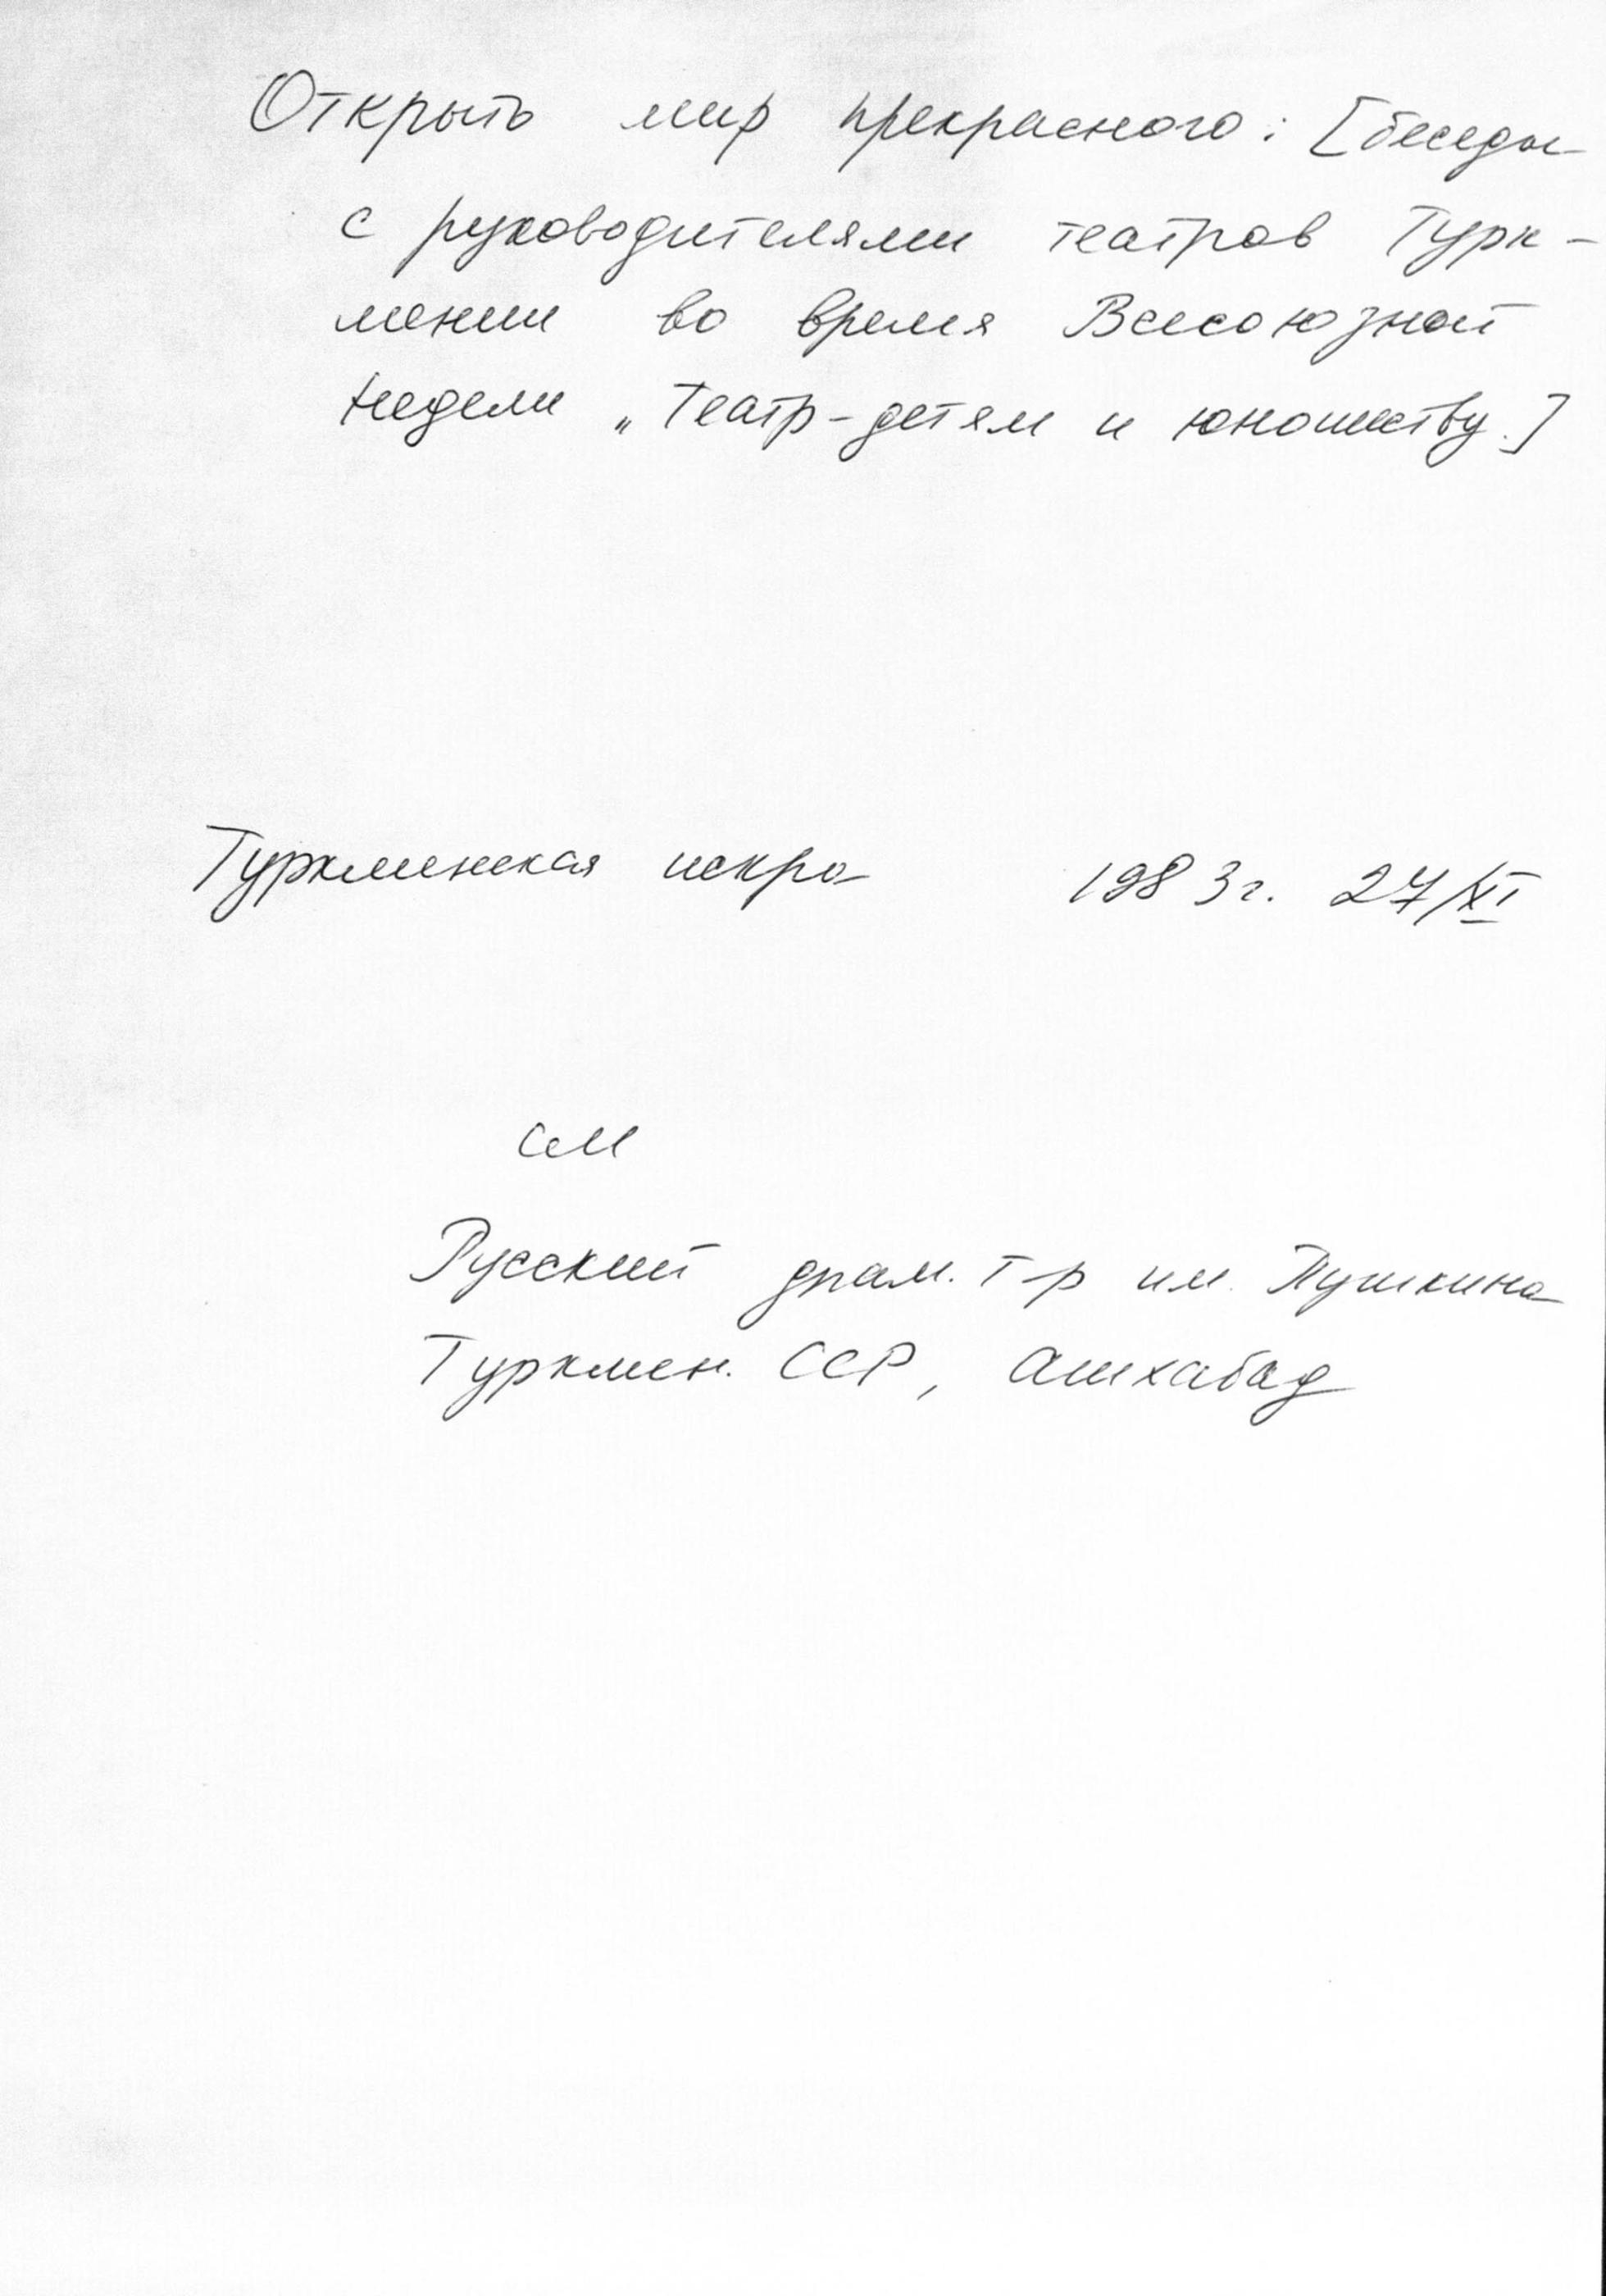 Открыть мир прекрасного: [беседы
с руководителями театров Турк-
мении во время Всесоюзной
недели „Театр-детям и юношеству.]
Туркменская искра 1983г. 27/XI
см
Русский драм. т-р им. Пушкина
Туркмен. ССР, Ашхабад